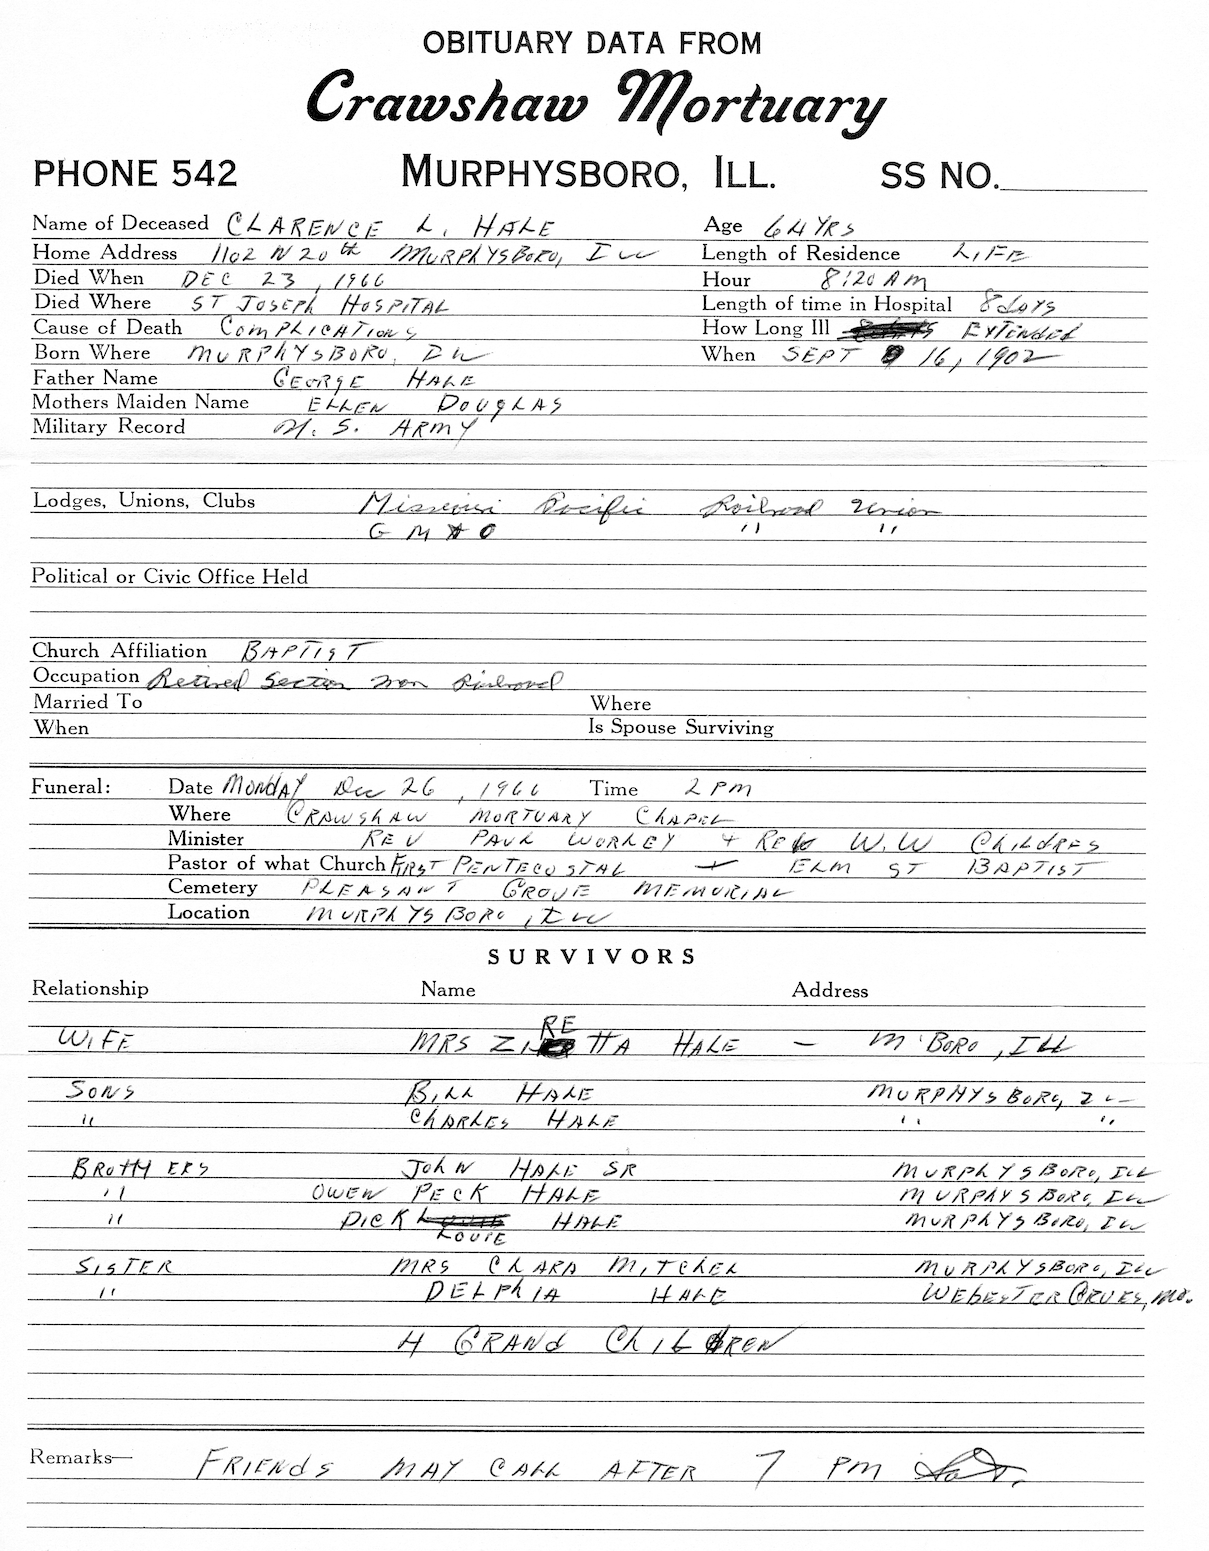 OBITUARY DATA FROM
Crawshaw Mortuary
PHONE 542 MURPHYSBORO, ILL. SS NO.
Name of Deceased CLARENCE L. HALE Age 64 YRS
Home Address 1102 N 20th MURPHYSBORO, ILL Length of Residence LIFE
Died When DEC 23, 1966 Hour 8:20 AM
Died Where ST JOSEPH HOSPITAL Length of time in Hospital 8 dAYS
Cause of Death COMPLICATIONS How Long Ill EXTENDED
Born Where MURPHYSBORO, ILL When SEPT 16, 1902
Father Name GEORGE HALE
Mothers Maiden Name ELLEN DOUGLAS
Military Record U. S. ARMY
Lodges, Unions, Clubs Missouri Pacific Railroad Union
G M & O " "
Political or Civic Office Held
Church Affiliation BAPTIST
Occupation Retired Section Man Railroad
Married To Where
When Is Spouse Surviving
Funeral: Date MONDAY Dec 26, 1966 Time 2 PM
Where CRAWSHAW MORTUARY CHAPEL
Minister REV PAUL WORLEY + REV W. W CHILDRES
Pastor of what Church FIRST PENTECOSTAL + ELM ST BAPTIST
Cemetery PLEASANT GROVE MEMORIAL
Location MURPHYSBORO, ILL
SURVIVORS
Relationship Name Address
WIFE MRS ZIRETTA HALE - M'BORO, ILL
SONS BILL HALE MURPHYSBORO, ILL
" CHARLES HALE " "
BROTHERS JOHN HALE SR MURPHYSBORO, ILL
" OWEN PECK HALE MURPHYSBORO, ILL
" DICK LOUIE HALE MURPHYSBORO, ILL
SISTER MRS CLARA MITCHEL MURPHYSBORO, ILL
" DELPHIA HALE WEBESTER GRUES, MO.
4 GRAND CHILDREN
Remarks— FRIENDS MAY CALL AFTER 7 PM Sat.